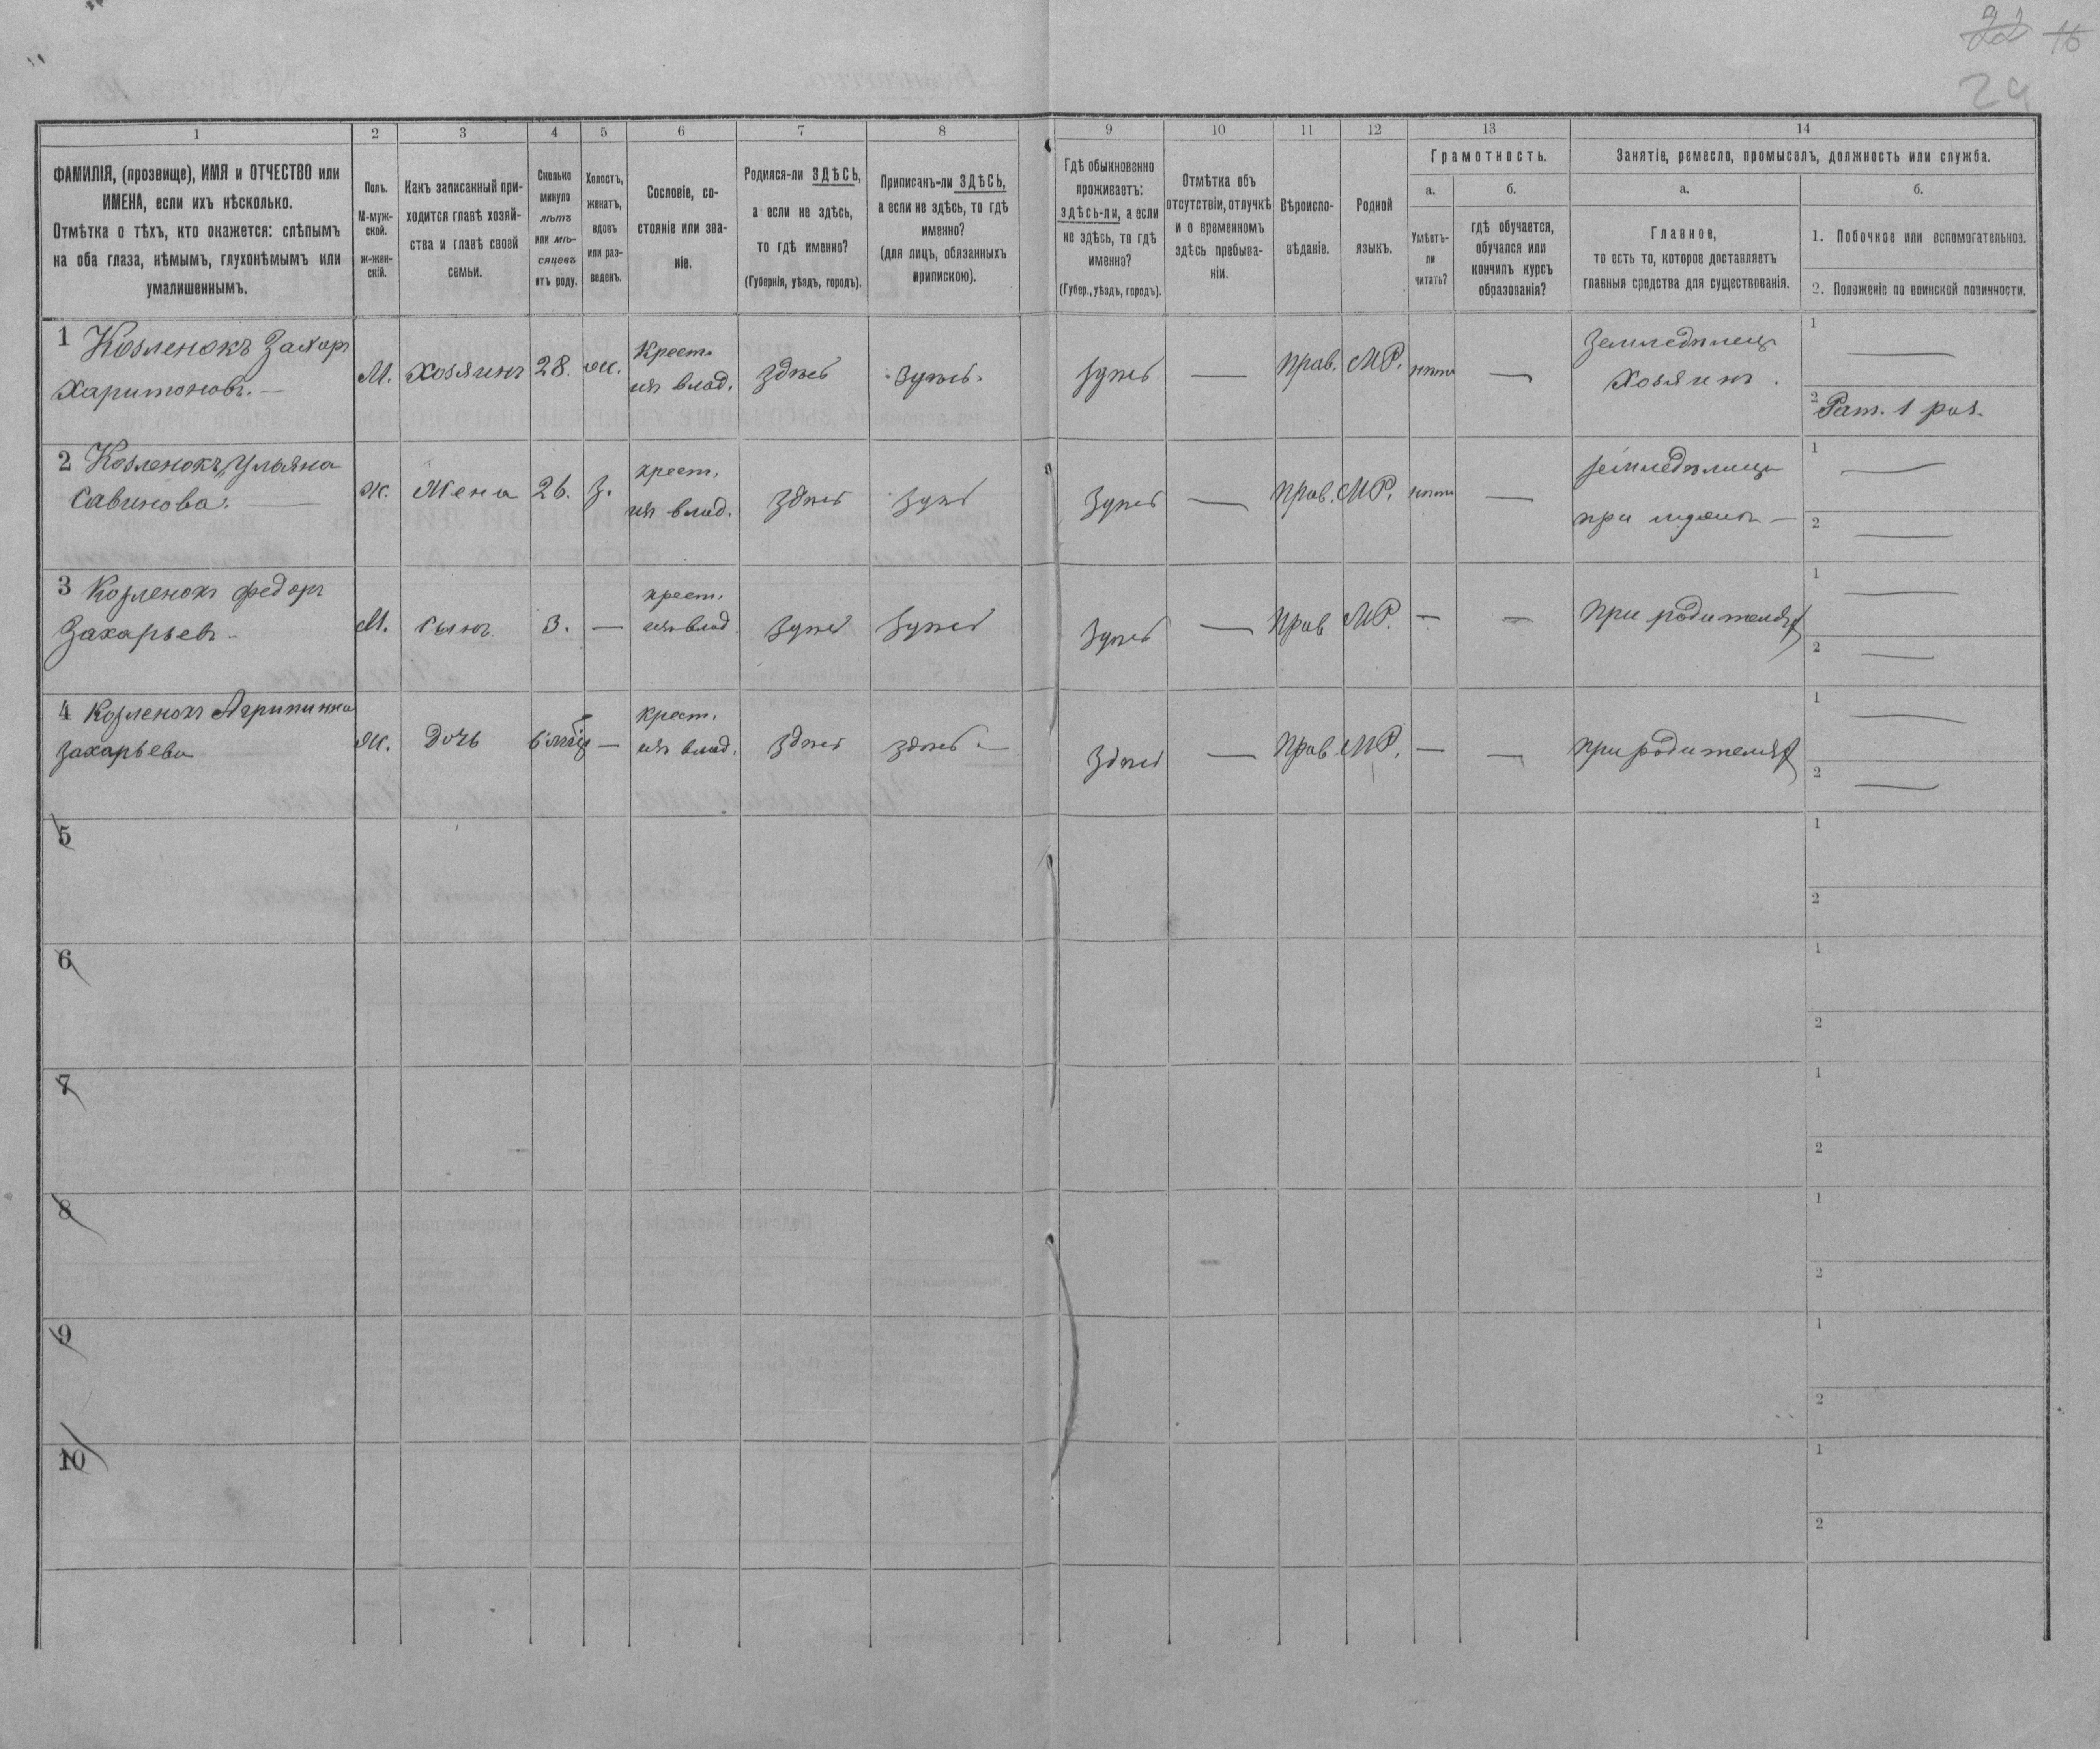 22 16
29
1 2 3 4 5 6 7 8 9 10 11 12 13 14
ФАМИЛІЯ, (прозвище), ИМЯ и ОТЧЕСТВО или
ИМЕНА, если ихъ нѣсколько.
Отмѣтка о тѣхъ, кто окажется: слѣпымъ
на оба глаза, нѣмымъ, глухонѣмымъ или
умалишеннымъ.
Полъ.
М-муж-
ской.
ж-жен-
скій.
Какъ записанный при-
ходится главѣ хозяй-
ства и главѣ своей
семьи.
Сколько
минуло
лѣтъ
или мѣ-
сяцевъ
отъ роду.
Холостъ,
женатъ,
вдовъ
или раз-
веденъ.
Сословіе, со-
стояніе или зва-
ніе.
Родился-ли ЗДѢСЬ,
а если не здѣсь,
то гдѣ именно?
(Губернія, уѣздъ, городъ).
Приписанъ-ли ЗДѢСЬ,
а если не здѣсь, то гдѣ
именно?
(для лицъ, обязанныхъ
припискою).
Гдѣ обыкновенно
проживаетъ:
здѣсь-ли, а если
не здѣсь, то гдѣ
именно?
(Губер., уѣздъ, городъ).
Отмѣтка объ
отсутствіи, отлучкѣ
и о временномъ
здѣсь пребыва-
ніи.
Вѣроиспо-
вѣданіе.
Родной
языкъ.
Грамотность.
а.
Умѣетъ-
ли
читать?
б.
гдѣ обучается,
обучался или
кончилъ курсъ
образованія?
Занятіе, ремесло, промыселъ, должность или служба.
а.
Главное,
то есть то, которое доставляетъ
главныя средства для существованія.
б.
1. Побочное или вспомогательное.
2. Положеніе по воинской повинности.
1 Козленокъ Захаръ
Харитоновъ. —
М. Хозяинъ 28. ж. Крест.
изъ влад. здѣсь здѣсь. здѣсь — Прав. МР. нѣтъ — Земледѣлецъ
Хозяинъ.
1 —
2 Рат. 1 раз.
2 Козленокъ, Ульяна
Савинова. —
ж. Жена 26. З. крест.
изъ влад. здѣсь здѣсь здѣсь — Прав. МР. нѣтъ — земледѣлецъ
при мужѣ —
1 —
2 —
3 Козленокъ Федоръ
Захарьевъ —
М. сынъ 3. — крест.
изъ влад здѣсь здѣсь здѣсь — Прав МР. — — При родителяхъ
1 —
2 —
4 Козленокъ Агрипинна
Захарьева
ж. Дочь 6 мѣс — крест.
изъ влад. здѣсь здѣсь — здѣсь — Прав МР. — — при родителяхъ
1 —
2 —
5
1
2
6
1
2
7
1
2
8
1
2
9
1
2
10
1
2